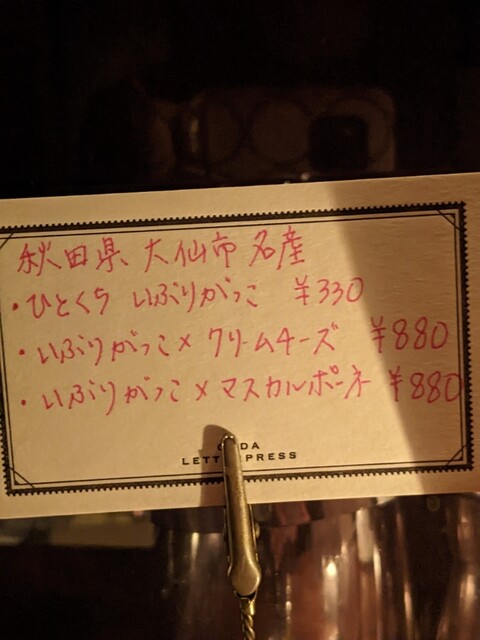 秋田県 大仙市名産
・ひとくち いぶりがっこ ¥330
・いぶりがっこ×クリームチーズ ¥880
・いぶりがっこ×マスカルポーネ ¥880